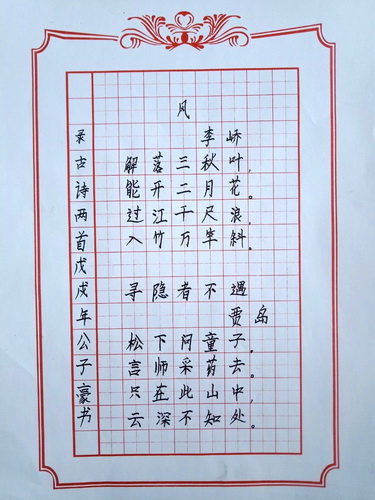 风
李峤
解落三秋叶，
能开二月花。
过江千尺浪，
入竹万竿斜。
寻隐者不遇
贾岛
松下问童子，
言师采药去。
只在此山中，
云深不知处。
录古诗两首戊戌年公子豪书